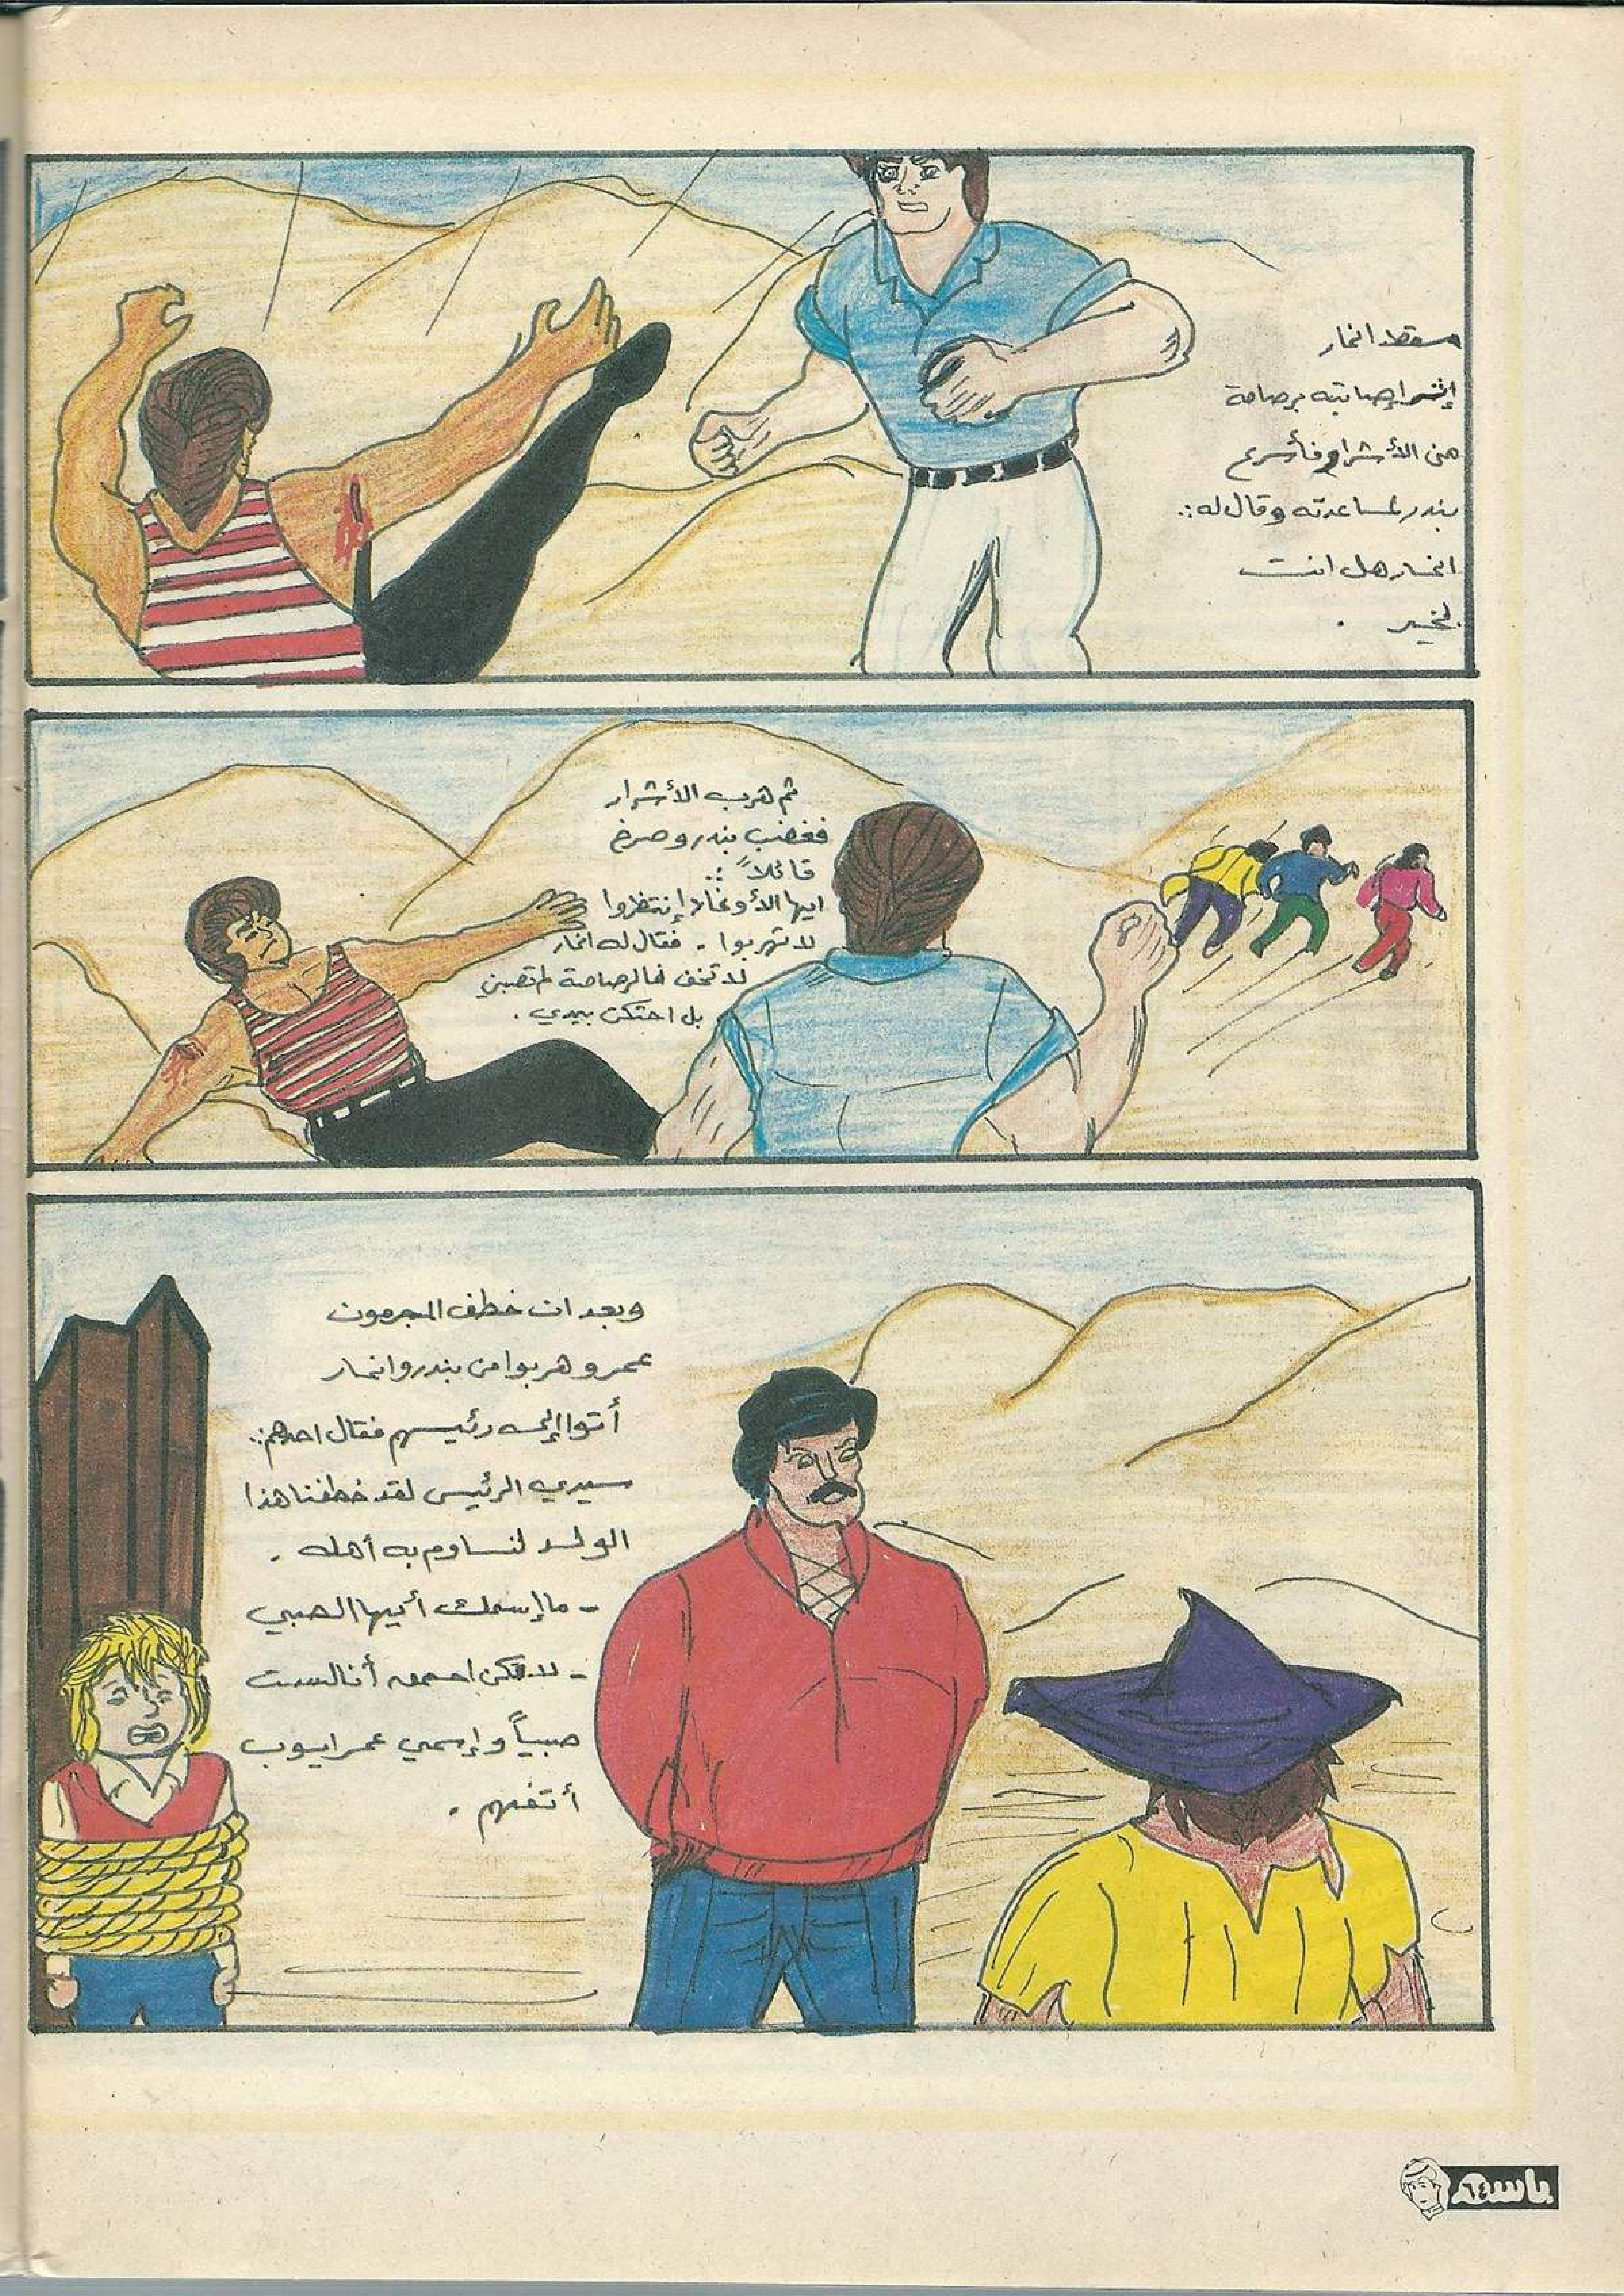 سقط انمار
إثر إصابته برصاصة
من الأشرار فأسرع
بندر لمساعدته وقال له:.
انمار هل انت
بخير .
ثم هرب الأشرار
فغضب بندر وصرخ
قائلاً :.
ايها الأوغاد إنتظروا
لا تهربوا - فقال له انمار
لا تخف فالرصاصة لم تصبني
بل احتكت بيدي .
وبعد ان خطف المجرمون
عمر وهربوا من بندر وانمار
أتوا إلى رئيسهم فقال احدهم:.
سيدي الرئيس لقد خطفنا هذا
الولد لنساوم به أهله .
- ما إسمك أيها الصبي
- لا تكن احمق أنا لست
صبياً وإسمي عمر ايوب
أتفهم .
باسم
٦٤